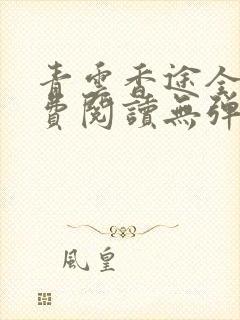 青雲香途全
費閱讀無彈
風皇